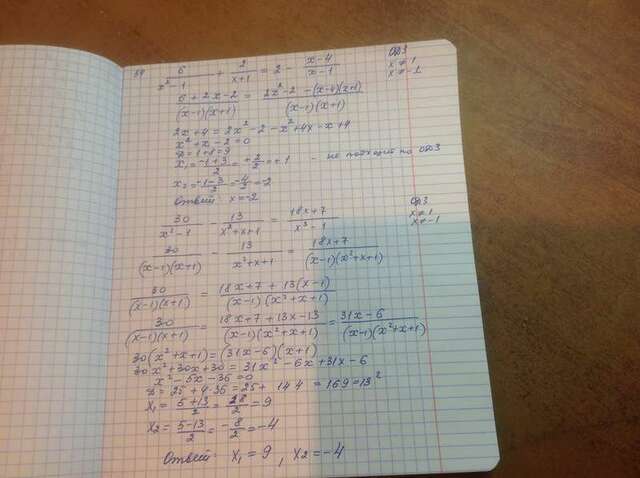 59 6/(x²-1) + 2/(x+1) = 2 - (x-4)/(x-1) ОДЗ x≠1 x≠-1
(6+2x-2)/((x-1)(x+1)) = (2x²-2-(x-4)(x+1))/((x-1)(x+1))
2x+4=2x²-2-x²+4x-x+4
x²+x-2=0
D=1+8=9
x₁=(-1+3)/2=+2/2=+1 - не подходит по ОДЗ
x₂=(-1-3)/2=-4/2=-2
Ответ x=-2
30/(x²-1) - 13/(x²+x+1) = (18x+7)/(x³-1) ОДЗ x≠1 x≠-1
30/((x-1)(x+1)) - 13/(x²+x+1) = (18x+7)/((x-1)(x²+x+1))
30/((x-1)(x+1)) = (18x+7+13(x-1))/((x-1)(x²+x+1))
30/((x-1)(x+1)) = (18x+7+13x-13)/((x-1)(x²+x+1)) = (31x-6)/((x-1)(x²+x+1))
30(x²+x+1)=(31x-6)(x+1)
30x²+30x+30=31x²-6x+31x-6
x²-5x-36=0
D=25+4·36=25+144=169=13²
x₁=(5+13)/2=18/2=9
x₂=(5-13)/2=-8/2=-4
Ответ: x₁=9, x₂=-4